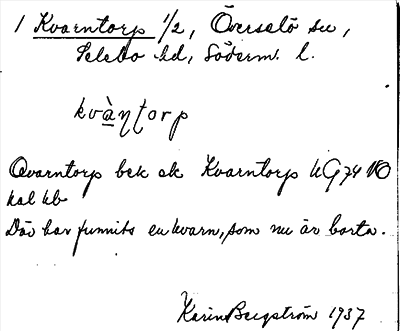 1 Kvarntorp 1/2, Överselö sn,
Selebo hd, Söderm. l.
kvàɳʈorp
Qvarntorp bek ek Kvarntorp kG74 NO
kal kb
Där har funnits en kvarn, som nu är borta.
Karin Bergström 1937